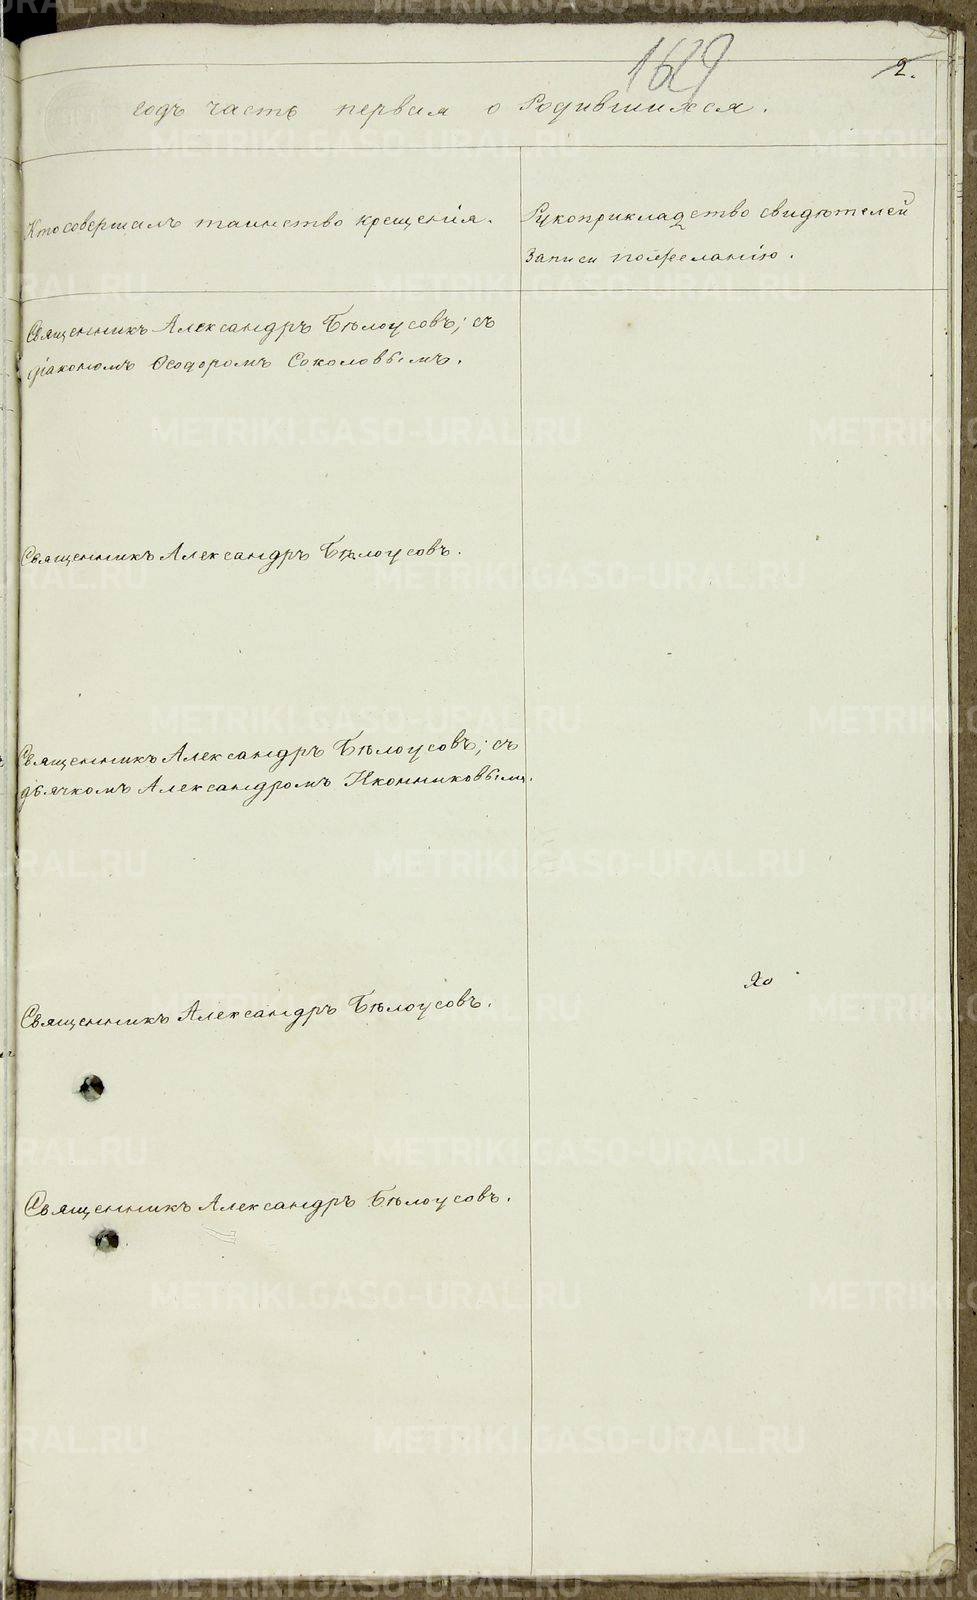 1629
2.
годъ часть первая о Родившихся.
Кто совершалъ таинство крещенія.
Рукоприкладство свидѣтелей
записи по желанію.
Священникъ Александръ Бѣлоусовъ; съ
діакономъ Ѳеодоромъ Соколовымъ.
Священникъ Александръ Бѣлоусовъ.
Священникъ Александръ Бѣлоусовъ; съ
дьячкомъ Александромъ Иконниковымъ.
Священникъ Александръ Бѣлоусовъ.
Священникъ Александръ Бѣлоусовъ.
METRIKI.GASO-URAL.RU